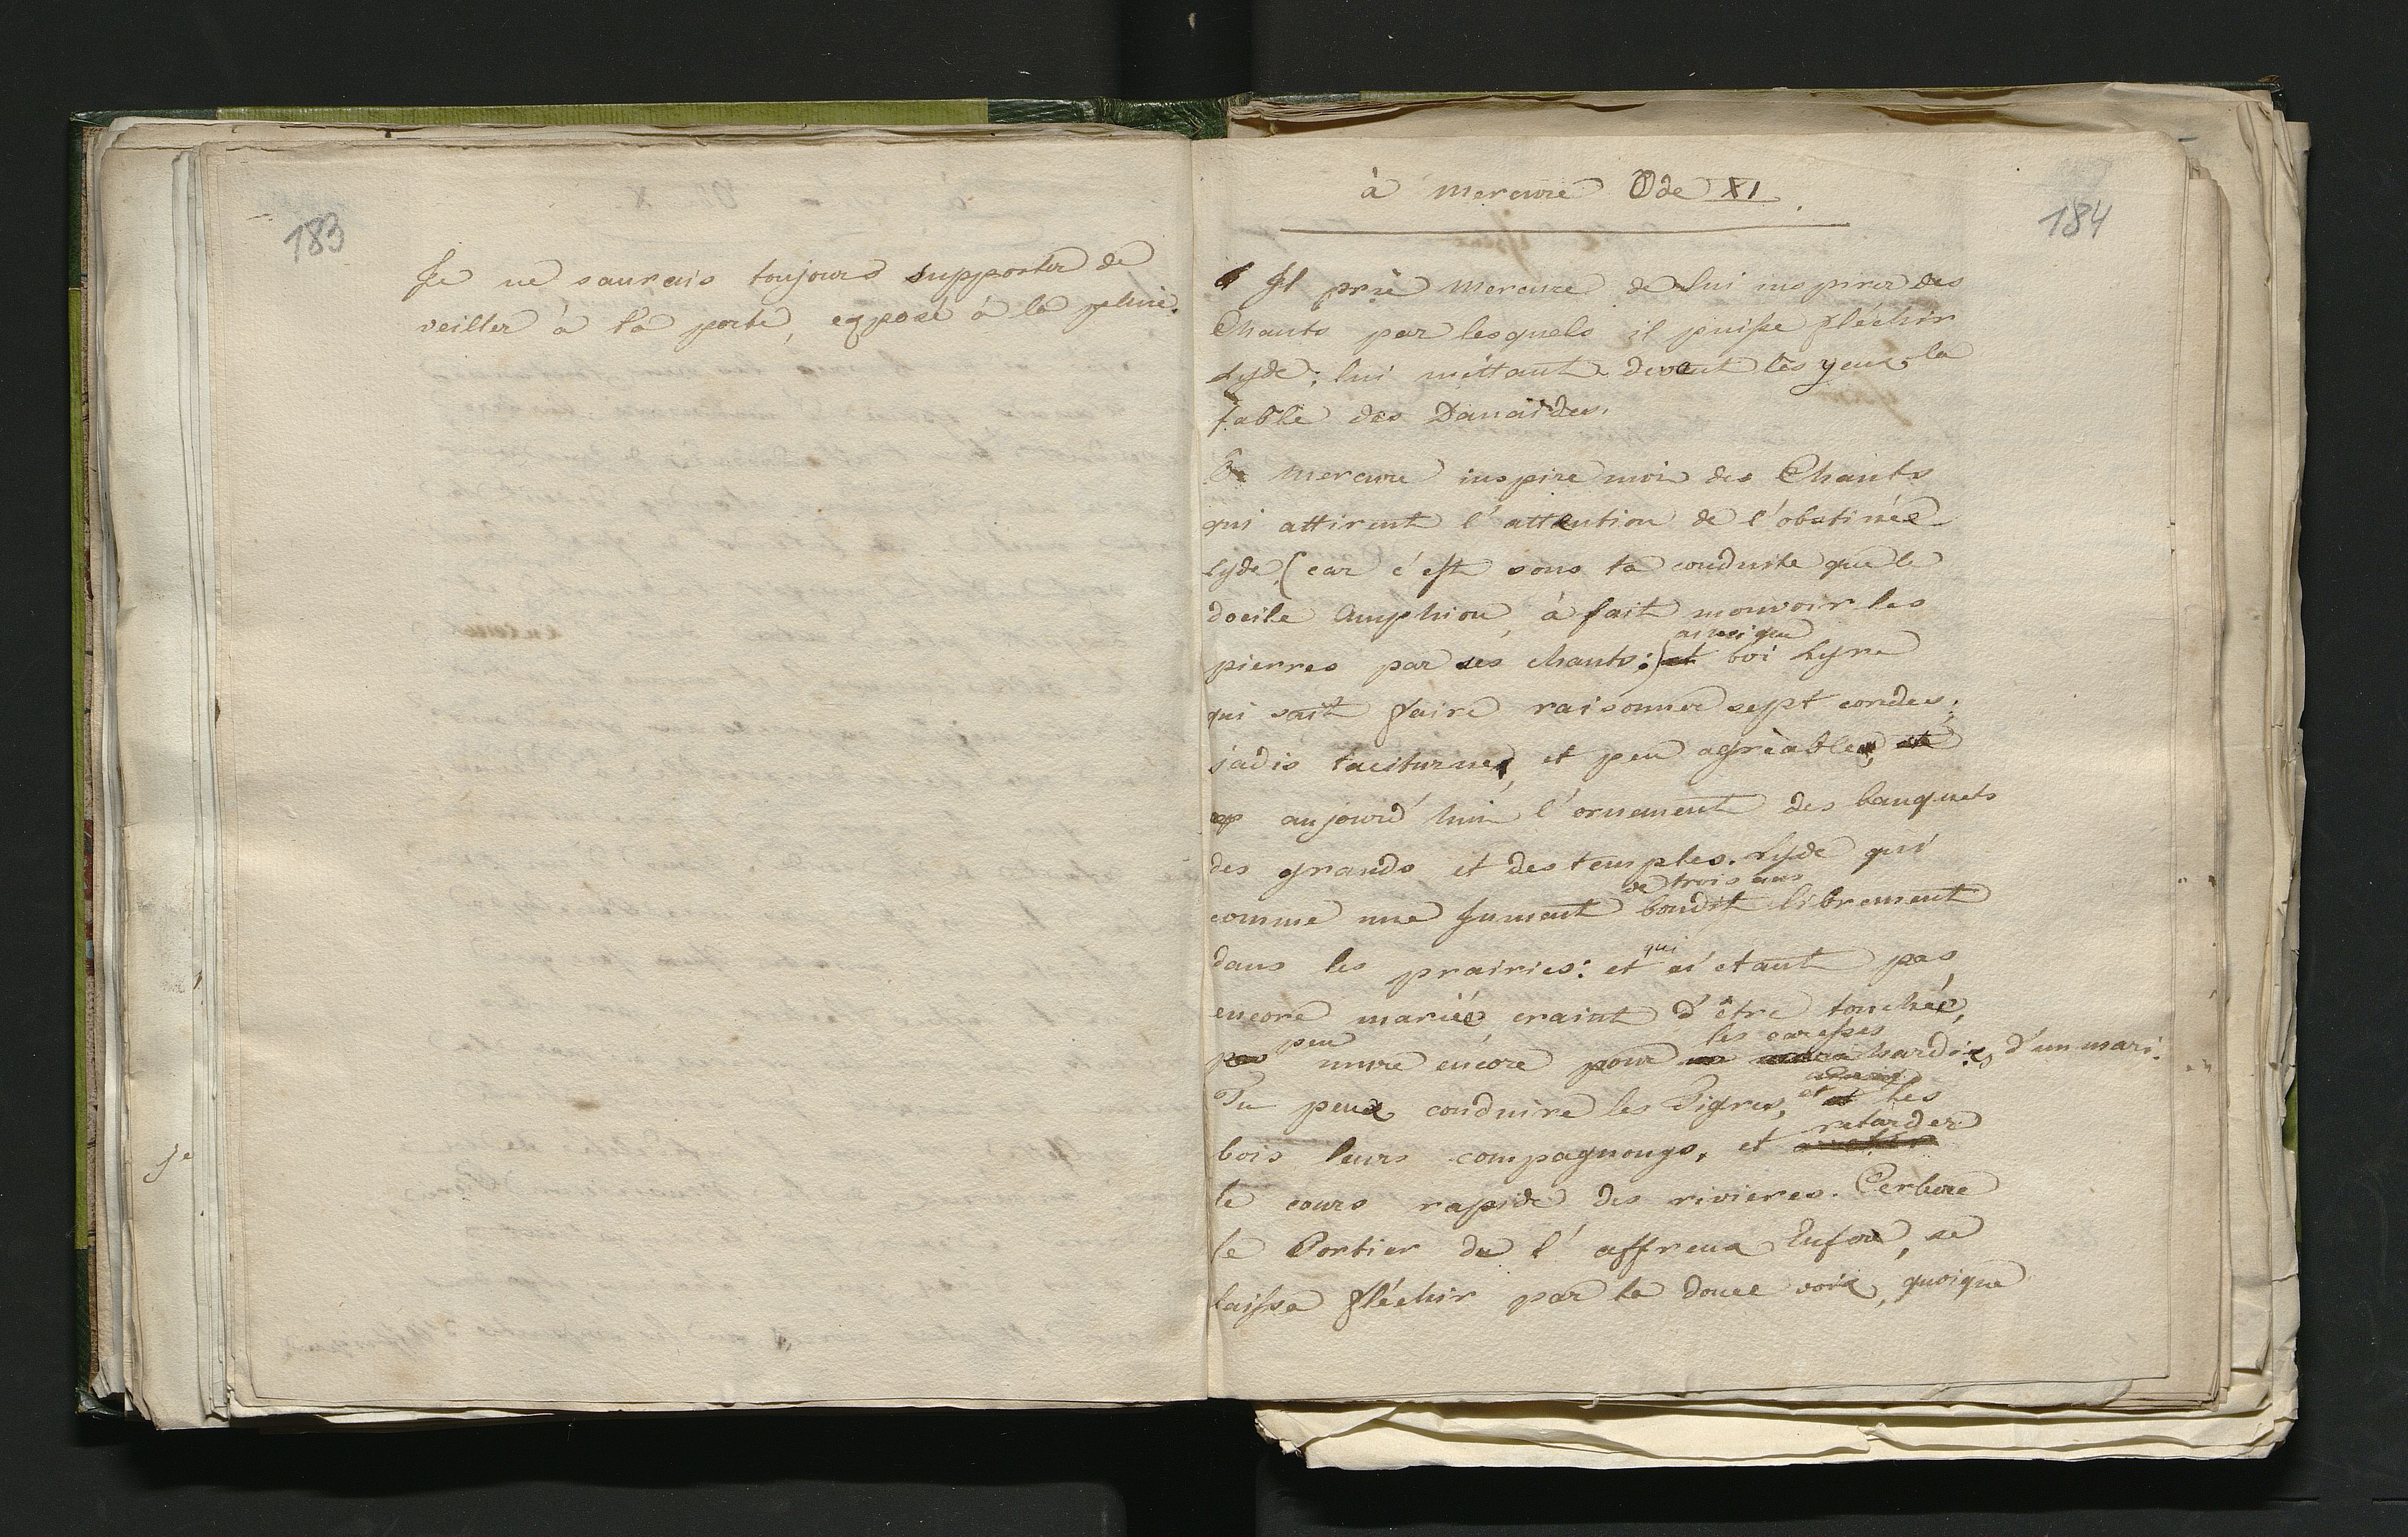 183
Je ne saurais toujours supporter de
veiller à ta porte, exposé à la pluie.
à Mercure Ode XI.
184
Il prie Mercure de lui inspirer des
Chants par lesquels il puisse fléchir
Lyde; lui mettant devant les yeux la
fable des Danaïdes.
Mercure inspire moi des Chants
qui attirent l'attention de l'obstinée
Lyde, (car c'est sous ta conduite que le
docile Amphion, à fait mouvoir les
ainsi que
pierres par ses chants:) et toi Lyre
qui sait faire raisonner sept cordes;
jadis taciturne, et peu agréable, et
aujourd'hui l'ornement des banquets
des grands et des temples. Lyde qui
de trois ans
comme une Jument bondit librement
qui
dans les prairies: et n'etant pas
encore mariée, craint d'être touchée,
peu les caresses
pas mure encore pour un mari hardies d'un mari.
Tu peux conduire les Tigres, et et les
retarder
bois leurs compagnongs, et arrêter
le cours rapide des rivieres. Cerbere
le Portier de l'affreux Enfer, se
laisse fléchir par ta douce voix, quoique
je